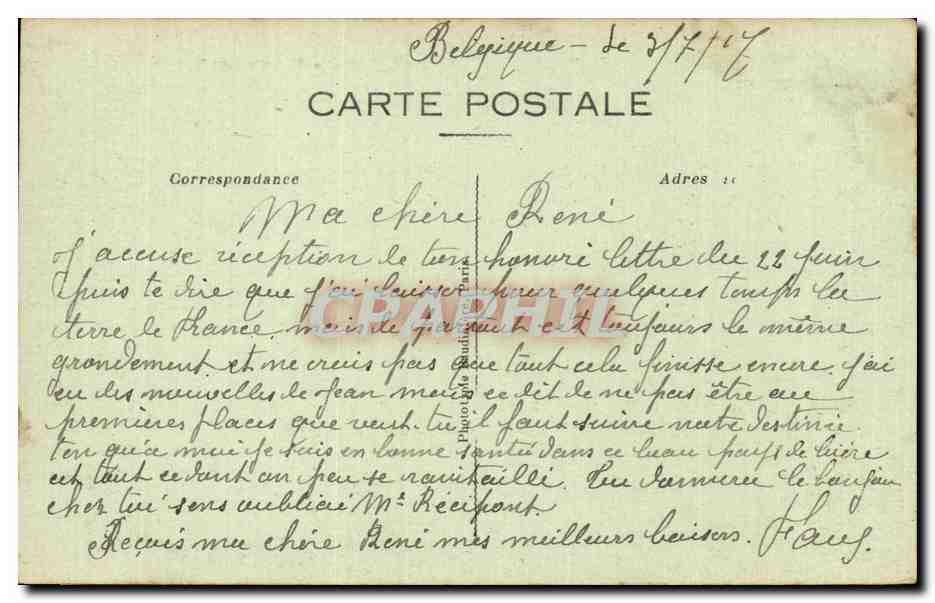 Belgique - le 3/7/17
CARTE POSTALE
Correspondance
Adres
Ma chère René
J'accuse réception de ton honoré lettre du 22 Juin
puis te dire que j'ai laisser pour quelques temps la
terre de France mais de partout c'est toujours le même
grondement et ne crois pas que tout cela finisse encore. j'ai
eu des nouvelles de Jean mais ce dit de ne pas être au
premières places que veut-tu il faut suivre notre destinée.
ton qu'a moi je suis en bonne santé dans ce beau pays de bière
est tout ce dont on peu se ravitaillé. Tu donnera le bonjour
chez toi sens oublié Mr Récipont.
Reçois ma chère René mes meilleurs baisers.
Phototypie Baudinière, Paris
CPAPHIL